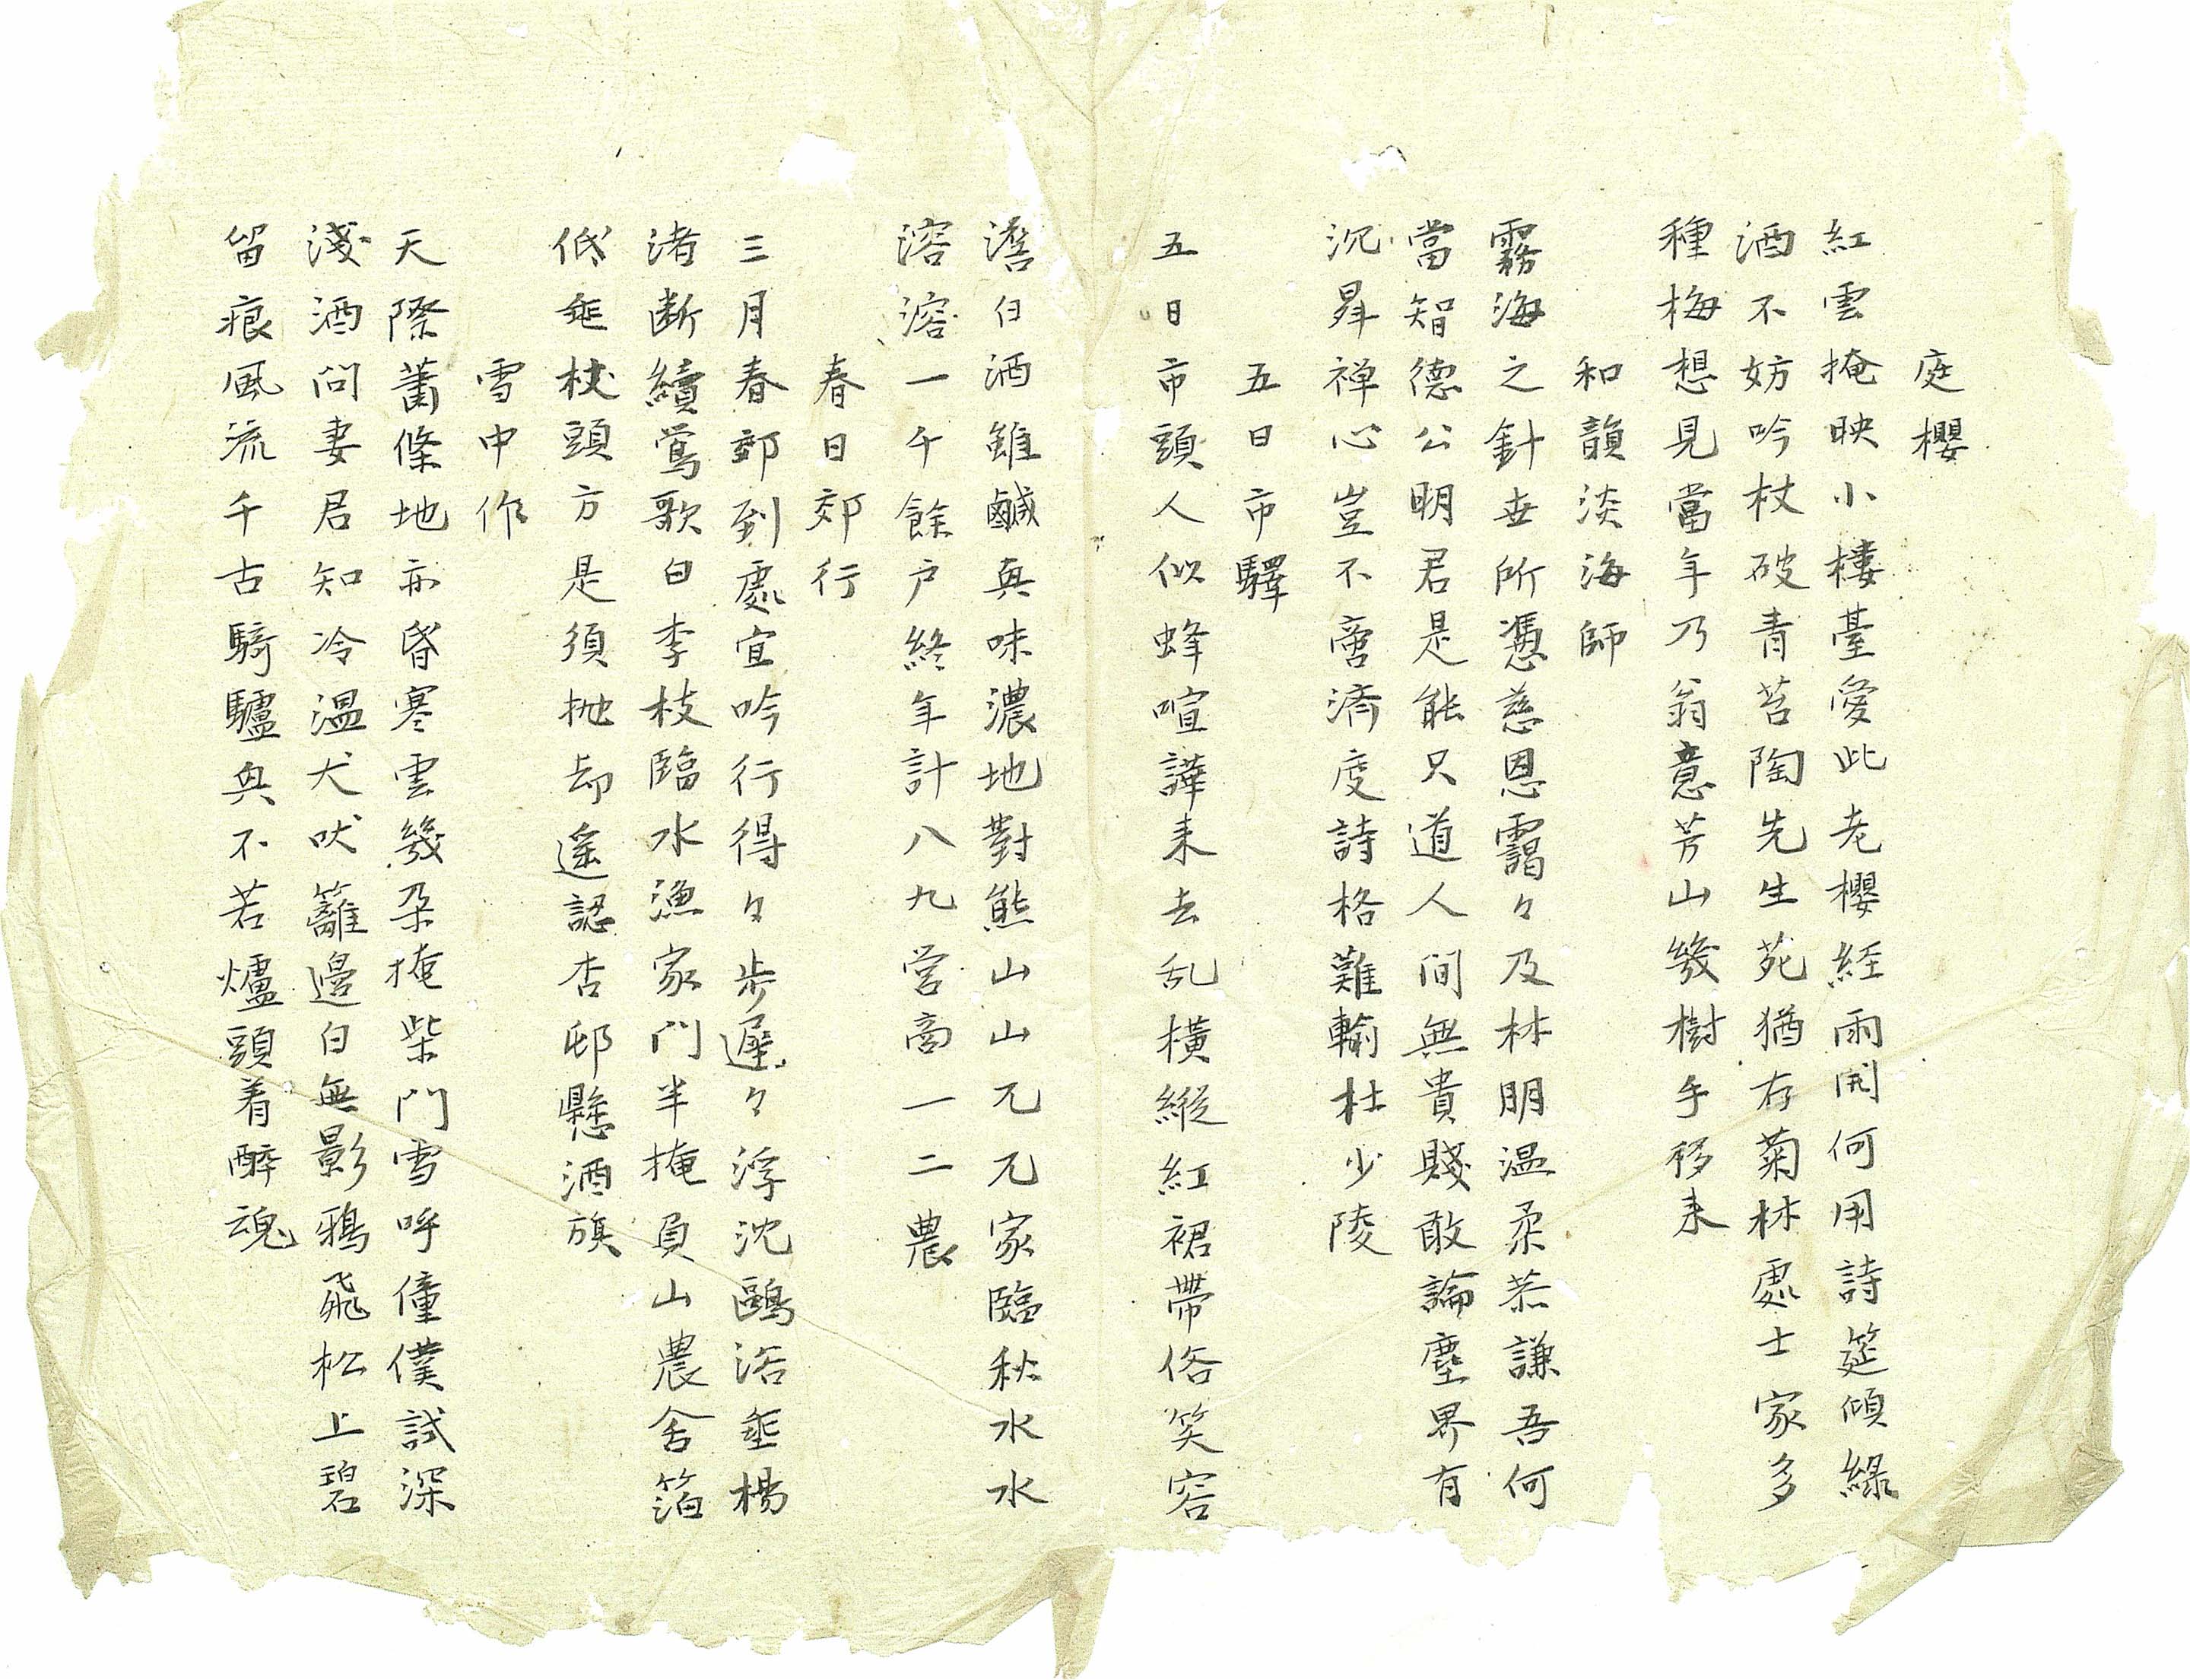 庭櫻
紅雲掩映小樓臺愛此老櫻経雨開何用詩筵傾綠
酒不妨吟杖破青苔陶先生苑猶存菊林處士家多
種梅想見當年乃翁意芳山幾樹手移来
和韻淡海師
霧海之針世所憑慈恩靄々及林明温柔恭謙吾何
當智德公明君是能只道人間無貴賤敢論塵界有
沉昇禅心豈不啻済度詩格難輸杜少陵
五日市驛
五日市頭人似蜂喧譁来去乱橫縦紅裙帶俗笑容
澹白酒雖鹹真味濃地對熊山山兀兀家臨秋水水
溶溶一千餘户終年計八九営商一二農
春日郊行
三月春郊到處宜吟行得々步遲々浮沈鷗浴垂楊
渚断續鶯歌白李枝臨水漁家門半掩負山農舍箔
低垂杖頭方是須抛却遥認杏邨懸酒旗
雪中作
天際蕭條地亦昏寒雲幾朶掩柴門雪呼僮僕試深
淺酒問妻君知冷温犬吠籬邊白無影鴉飛松上碧
留痕風流千古騎驢興不若爐頭着醉魂